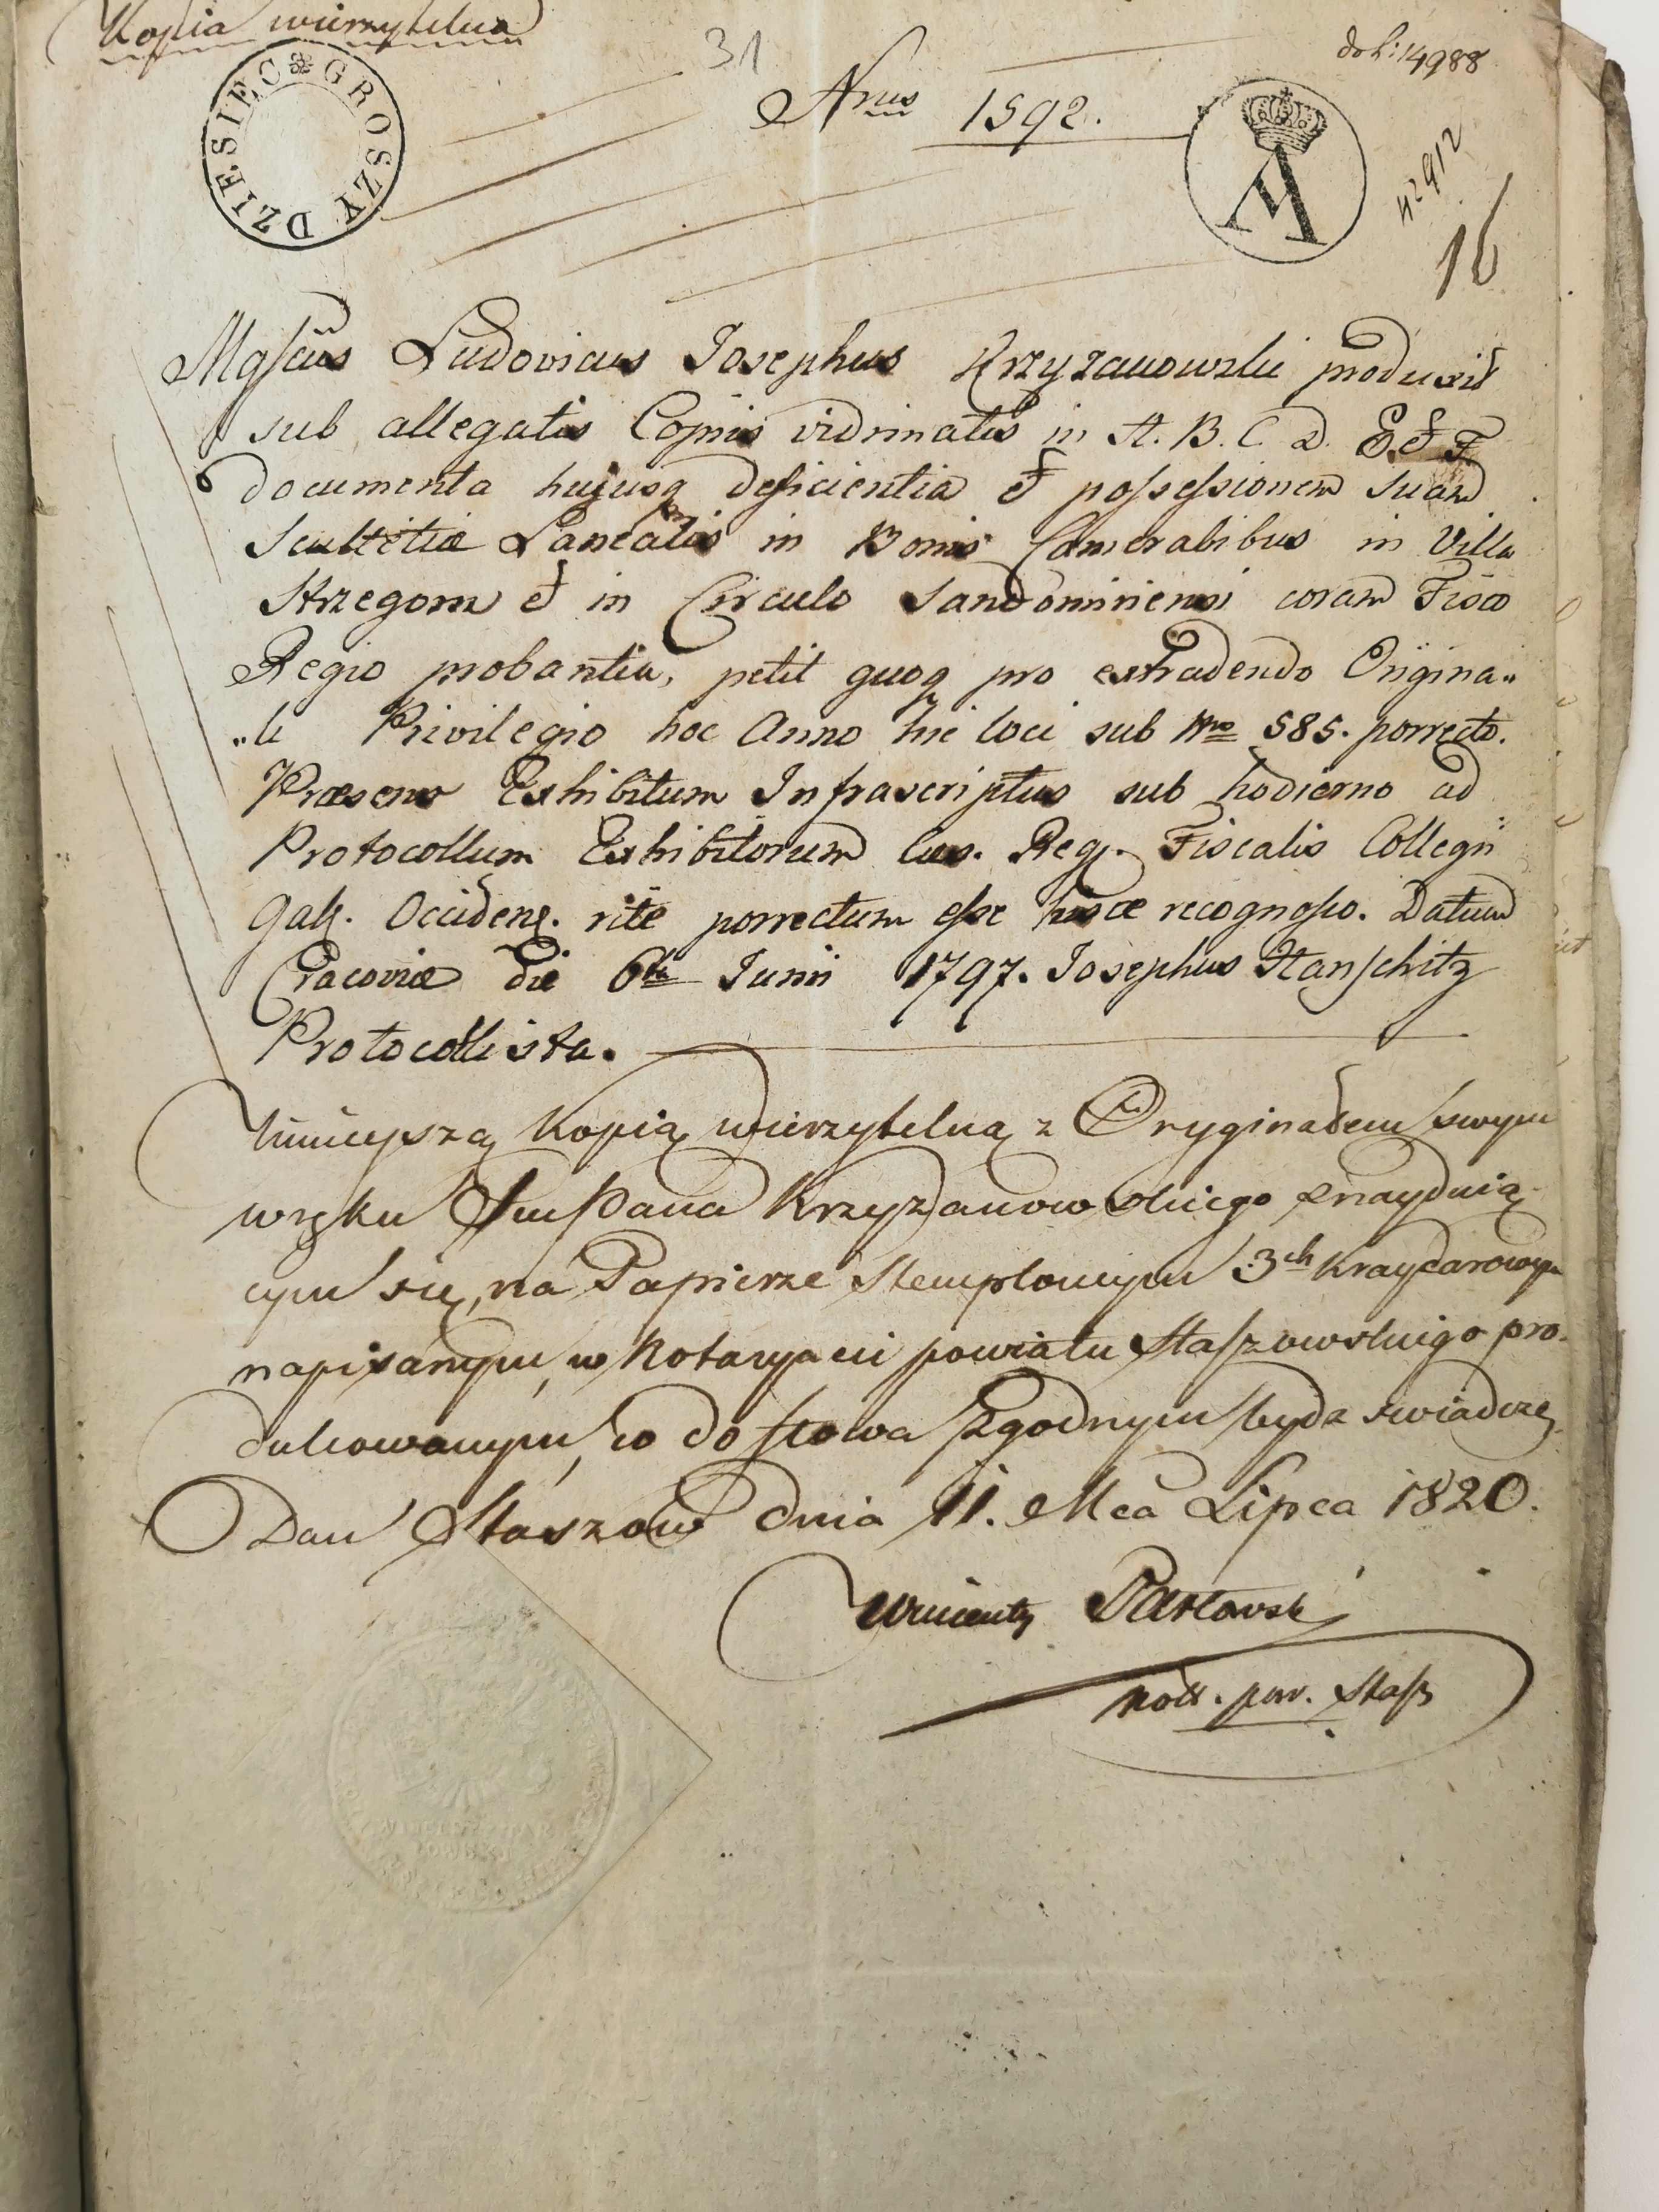 Kopia wierzytelna
31
do L: 14988
DZIESIEC GROSZY
Nrus 1592.
A
42912
16
Mgſcus Ludovicus Josephus Krzyzanowski produxit
sub allegatis Copiis vidimatis in A. B. C. D. E. et F
documenta hujusq deficientia et poſseſsionem suam
Scultetiæ Lanealis in Bonis Cameralibus in Villa
Strzegom et in Circulo Sandomiriensi coram Fisco
Regio probantia, petit quoq pro extradendo Origina„
„li Privilegio hoc Anno hic loci sub Nro 585. porrecto.
Præsens Exhibitum Infrascriptus sub hodierno ad
Protocollum Exhibitorum Cæs. Reg. Fiscalis Collegii
Gali. Occiden. rite porrectum eſse hisce recognoſco. Datum
Cracoviæ die 6ta Junii 1797. Josephus Hanſchitz
Protocollista.
Ninieyszą Kopią wierzytelną z Oryginałem swym
w ręku JmPana Krzyzanowskiego znayduią-
cym się, na Papierze stemplowym 3ch Kraycarowym
napisanym, w Notaryacie powiatu Staſzowskiego pro-
dukowanym, co do słowa zgodnym bydz swiadczę,
Dan Staszow dnia 11. Mca Lipca 1820.
Wincenty
pow. Staſz